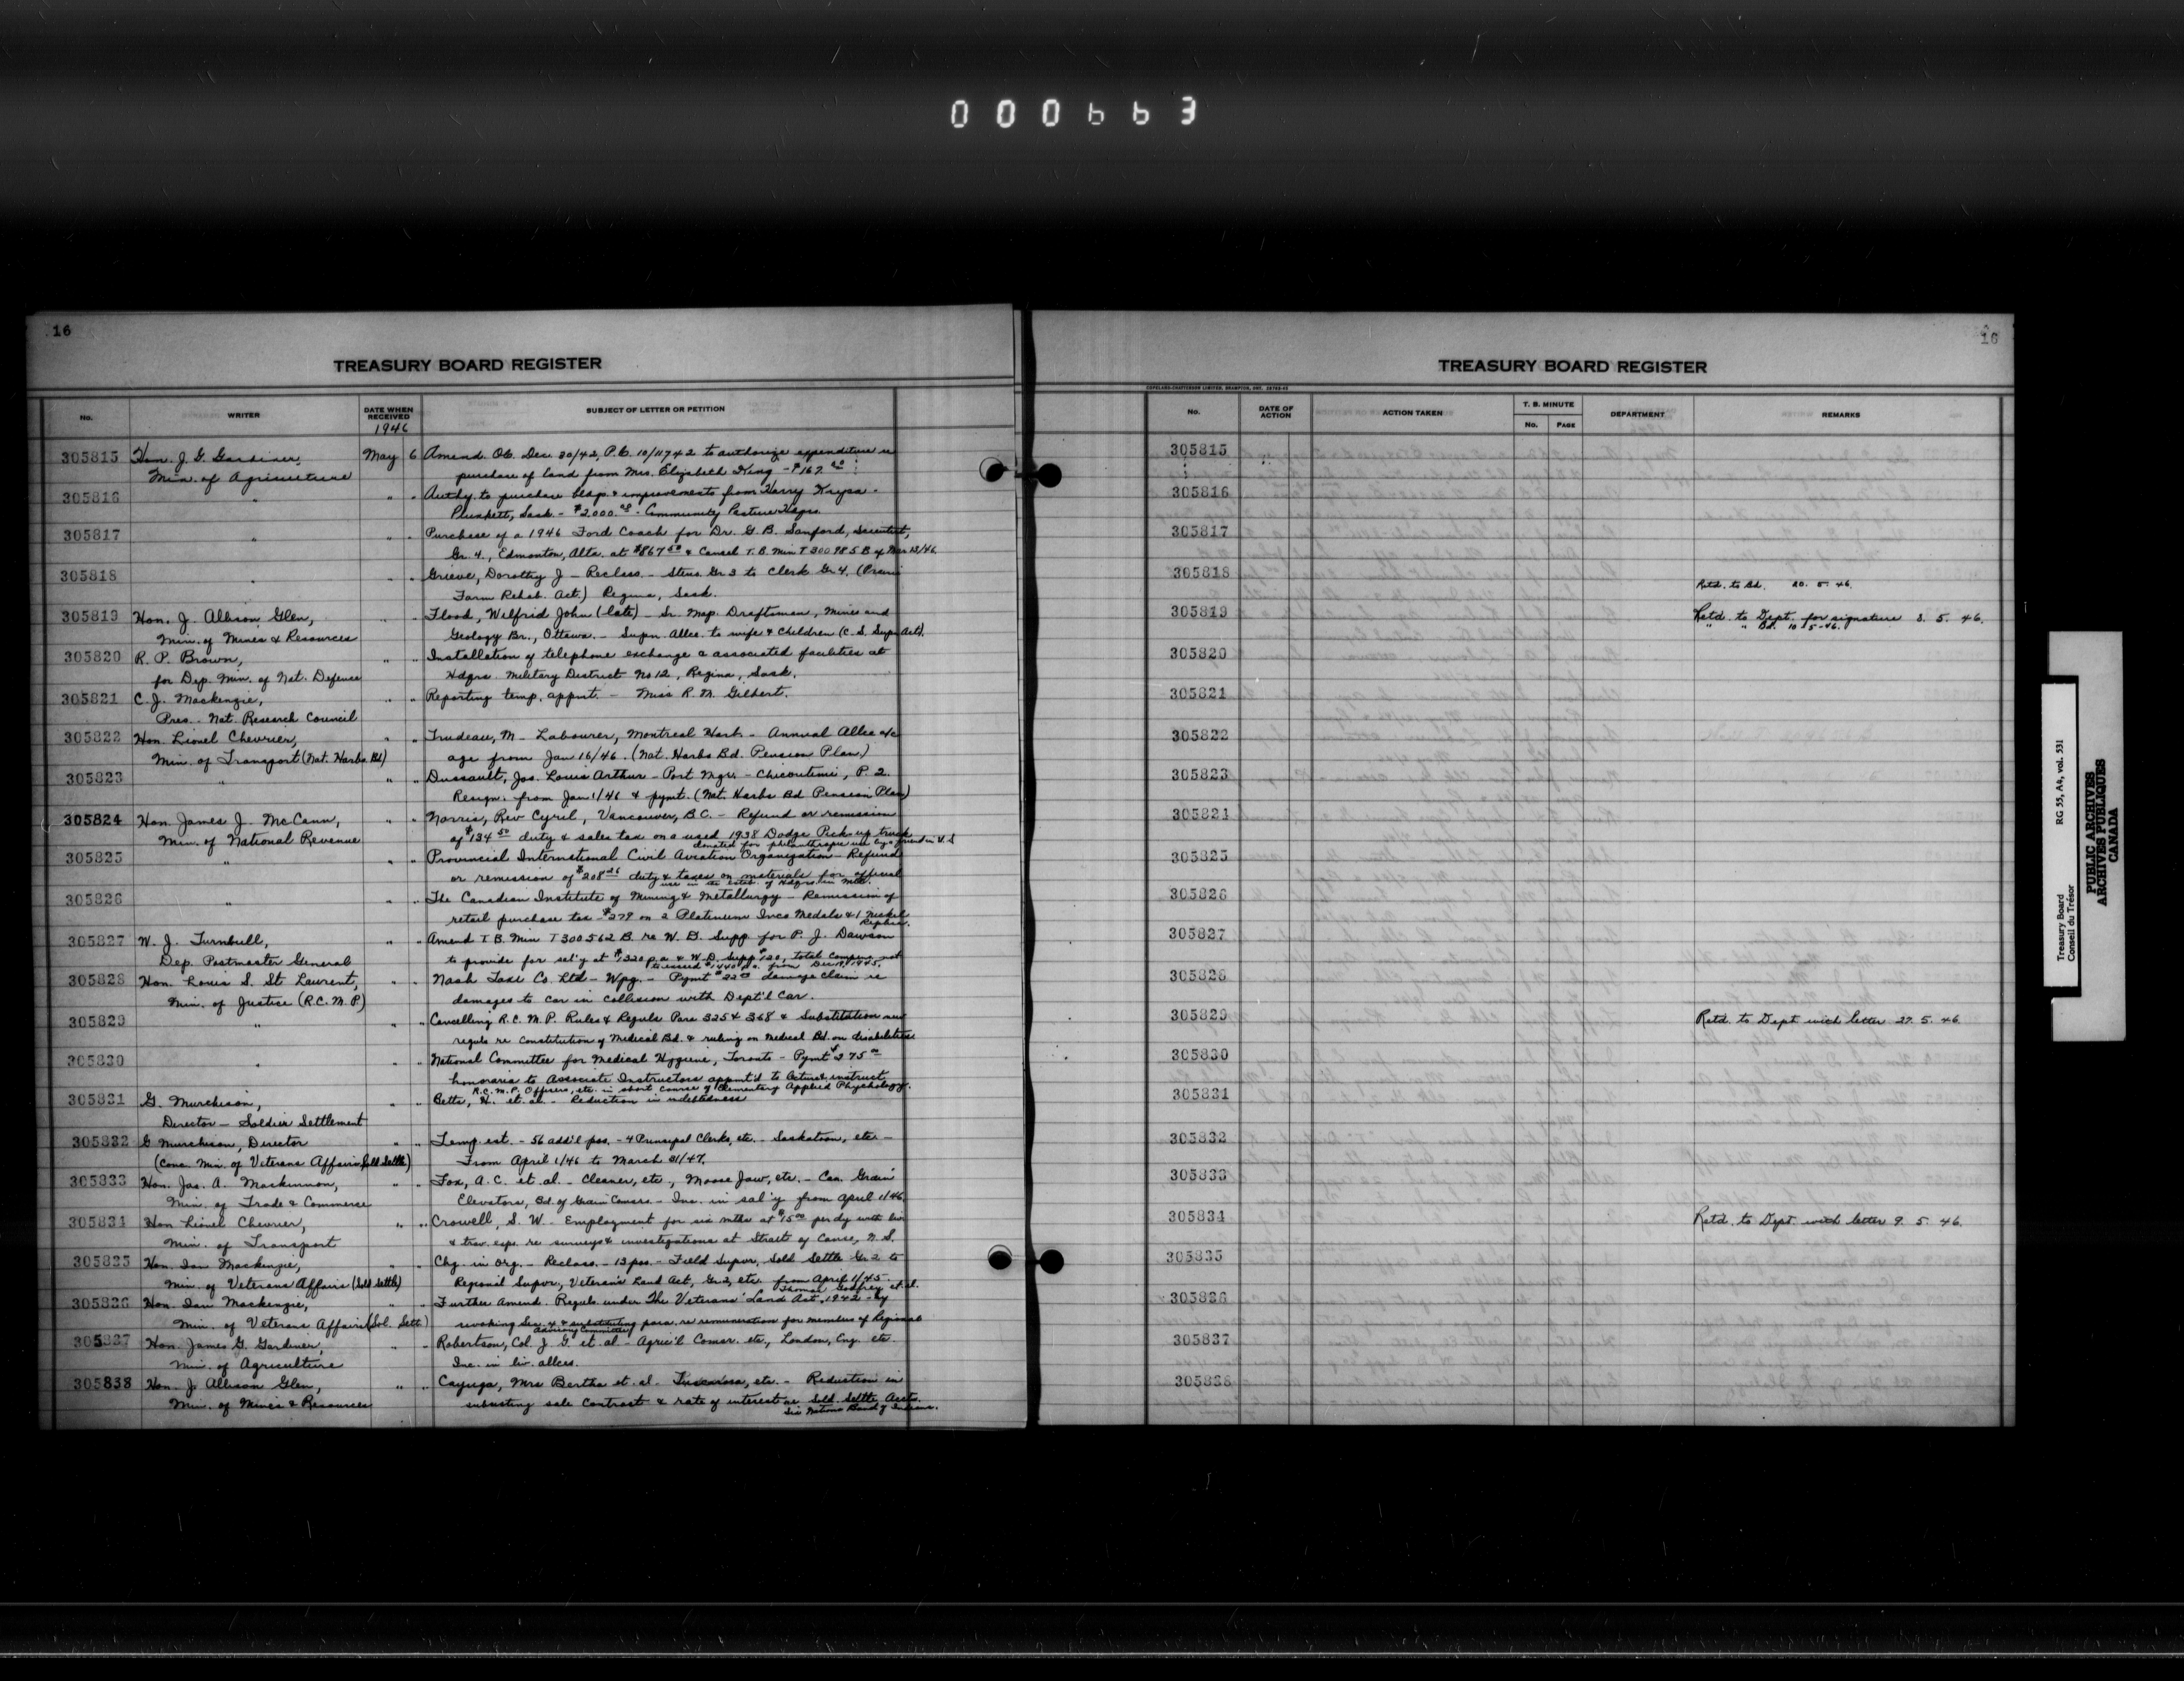 000663
16
TREASURY BOARD REGISTER
No.
WRITER
DATE WHEN RECEIVED
1946
SUBJECT OF LETTER OR PETITION
305815 Hon. J. G. Gardiner, May 6 Amend. O.C. Dec. 30/42, P.C. 10/11742 to authorize expenditure re
Min. of Agriculture purchase of land from Mrs. Elizabeth King - $167.00
305816 " " " Authy. to purchase bldgs. & improvements from Harry Krysa -
Plunkett, Sask. - $2,000.00 - Community Pasture Hdqrs.
305817 " " " Purchase of a 1946 Ford Coach for Dr. G. B. Sanford, Scientist,
Gr. 4., Edmonton, Alta. at $867.50 & Cancel T.B. Min T 300985 B of Mar 13/46
305818 " " " Grieve, Dorothy J - Reclass. - Steno. Gr 3 to Clerk Gr 4. (Prairie
Farm Rehab. Act.) Regina, Sask.
305819 Hon. J. Allison Glen, " " Flood, Wilfrid John (late) - Sr. Map. Draftsman, Mines and
Min. of Mines & Resources Geology Br., Ottawa. - Supn. Allce. to wife & children (C. S. Supn Act).
305820 R. P. Brown, " " Installation of telephone exchange & associated facilities at
for Dep. Min. of Nat. Defence Hdqrs. Military District No 12, Regina, Sask.
305821 C. J. Mackenzie, " " Reporting temp. appmt. - Miss R. M. Gilbert.
Pres. - Nat. Research Council
305822 Hon. Lionel Chevrier, " " Trudeau, M - Labourer, Montreal Harb - Annual Allce a/c
Min. of Transport (Nat. Harbs. Bd) age from Jan 16/46. (Nat. Harbs Bd. Pension Plan.)
305823 " " " Dussault, Jos. Louis Arthur - Port Mgr. - Chicoutimi, P. Q.
Resign. from Jan 1/46 & pymt. (Nat. Harbs Bd Pension Plan)
305824 Hon. James J. McCann, " " Norris, Rev Cyril, Vancouver, B.C. - Refund or remission
Min. of National Revenue of $134.50 duty & sales tax on a used 1938 Dodge Pick-up truck
donated for philanthropic use by a friend in U.S
305825 " " " Provincial International Civil Aviation Organization - Refund
or remission of $208.26 duty & taxes on materials for official
use in the estab. of Hdqrs. in Mtl.
305826 " " " The Canadian Institute of Mining & Metallurgy - Remission of
retail purchase tax - $279 on 2 Platinum Inco Medals & 1 Nickel
Replica.
305827 W. J. Turnbull, " " Amend T.B. Min T 300562 B. re W. D. Supp. for P. J. Dawson
Dep. Postmaster General to provide for sal'y at $1320 p.a. & W. D. Supp $120, total compen. not
to exceed $1440 p.a. from Dec 19, 1945.
305828 Hon. Louis S. St Laurent, " " Nash Taxi Co. Ltd - Wpg. - Pymt $22.00 damage claim re
Min. of Justice (R.C.M.P) damages to car in collision with Dept'l Car.
305829 " " " Cancelling R.C.M.P. Rules & Reguls Para 325 & 368 & Substitution new
reguls re Constitution of Medical Bd. & ruling on Medical Bd. on disabilities
305830 " " " National Committee for Medical Hygiene, Toronto - Pymt $275.00
honoraria to Associate Instructors appmt'd to lecture & instruct
R.C.M.P. Officers, etc. in short course of Elementary Applied Phychology.
305831 G. Murchison, " " Betts, H. et al. - Reduction in indebtedness
Director - Soldier Settlement
305832 G Murchison, Director " " Temp. est. - 56 add'l pos. - 4 Principal Clerks, etc. - Saskatoon, etc -
(Conc. Min. of Veterans Affairs, Sold Settle) From April 1/46 to March 31/47.
305833 Hon. Jas. A. Mackinnon, " " Fox, A. C. et al. - Cleaner, etc., Moose Jaw, etc. - Can. Grain
Min. of Trade & Commerce Elevators, Bd. of Grain Comsrs. - Inc. in sal'y from April 1/46
305834 Hon Lionel Chevrier, " " Crowell, S. W. Employment for six mths at $15.00 per dy with liv
Min. of Transport & trav. exps. re surveys & investigations at Strait of Canso, N. S.
305835 Hon. Ian Mackenzie, " " Chg. in Org. - Reclass. - 13 pos. - Field Supvr, Sold Settle Gr 2 to
Min. of Veterans Affairs (Sold Settle) Regional Supvr, Veteran's Land Act, Gr 2, etc. from April 1/45.
Thomas Godfrey et al.
305836 Hon. Ian Mackenzie, " " Further Amend. Reguls under The Veterans' Land Act, 1942 - by
Min. of Veterans Affairs (Sol. Sett) revoking Sec. 4 & substituting para. re remuneration for members of Regional
Advisory Committee
305837 Hon. James G. Gardiner, " " Robertson, Col. J. G. et al - Agric'l Comsr. etc, London, Eng. etc.
Min. of Agriculture Inc. in liv. allces.
305838 Hon. J. Allison Glen, " " Cayuga, Mrs Bertha et. al. Tuscarora, etc. - Reduction in
Min. of Mines & Resources subsisting sale contract & rate of interest re Sold. Settle Accts.
Six Nations Band of Indians.
16
TREASURY BOARD REGISTER
COPELAND-CHATTERSON LIMITED, BRAMPTON, ONT.
No.
DATE OF ACTION
ACTION TAKEN
T. B. MINUTE
No. PAGE
DEPARTMENT
REMARKS
305815
305816
305817
305818 Retd. to Bd. 20. 5. 46.
305819 Retd. to Dept. for signature 8. 5. 46.
" " Bd. 10-5-46.
305820
305821
305822
305823
305824
305825
305826
305827
305828
305829 Retd. to Dept with letter 27. 5. 46.
305830
305831
305832
305833
305834 Retd. to Dept. with letter 9. 5. 46.
305835
305836
305837
305838
Treasury Board RG 55, A4, vol. 531
Conseil du Trésor
PUBLIC ARCHIVES
ARCHIVES PUBLIQUES
CANADA